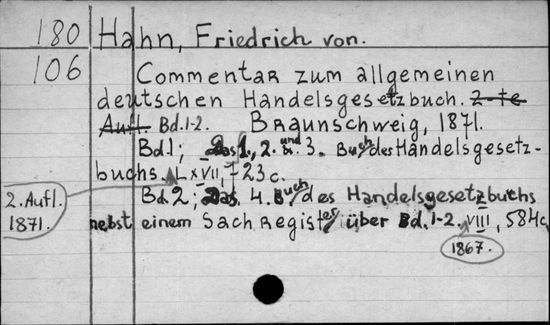 180 Hahn, Friedrich von.
106 Commentar zum allgemeinen
deutschen Handelsgesetzbuch. 2-te
Aufl. Bd.1-2. Braunschweig, 1871.
Bd.1; Das 1., 2. und 3. Buch des Handelsgesetz-
buchs. LXVII, -23 c.
2. Aufl.
1871.
Bd. 2; Das 4. Buch des Handelsgesetzbuchs
nebst einem Sachregister über Bd. 1-2. VIII, 584 c.
1867.